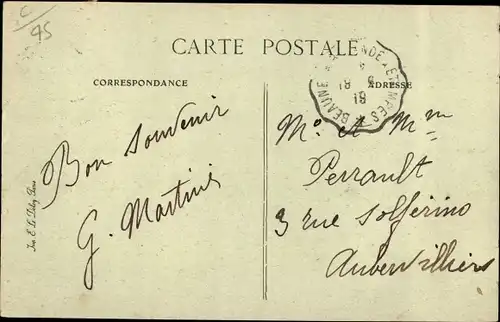 C
45
CARTE POSTALE
CORRESPONDANCE
ADRESSE
BEAUNE ETAMPES
Bon Souvenir
G. Martini
Mr et Mme
Perrault
3 rue Solferino
Aubervilliers
Imp. E. Le Deley, Paris